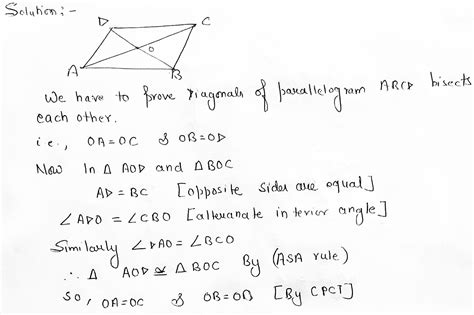 Solution :-
D
C
O
A
B
We have to prove Diagonals of parallelogram ABCD bisects
each other.
i.e., OA = OC & OB = OD
Now In Δ AOD and Δ BOC
AD = BC [opposite sides are equal]
∠ADO = ∠CBO [alteranate interior angle]
Similarly ∠DAO = ∠BCO
∴ Δ AOD ≅ Δ BOC By (ASA rule)
So, OA = OC & OB = OD [By CPCT]